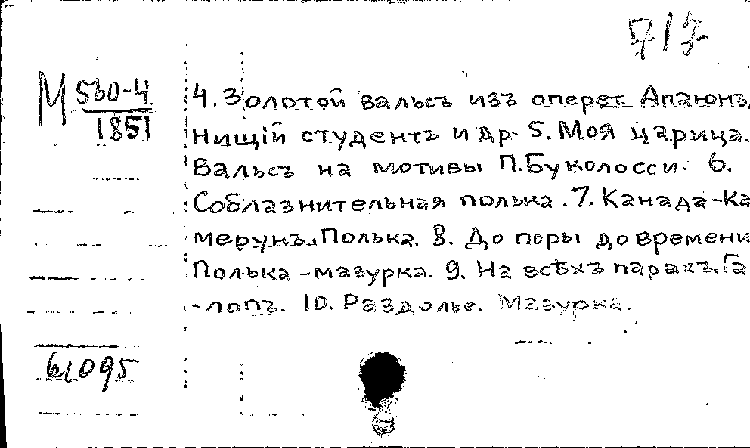 717
М 530-4
1851
4. Золотой вальсъ изъ оперет. Апаюнъ,
Нищій студентъ и др. 5. Моя царица.
Вальсъ на мотивы П. Буколосси. 6.
Соблазнительная полька. 7. Канада-Ка
мерунъ. Полька. 8. До поры до времени
Полька-мазурка. 9. На всѣхъ парахъ. Га
-лопъ. 10. Раздолье. Мазурка.
61095